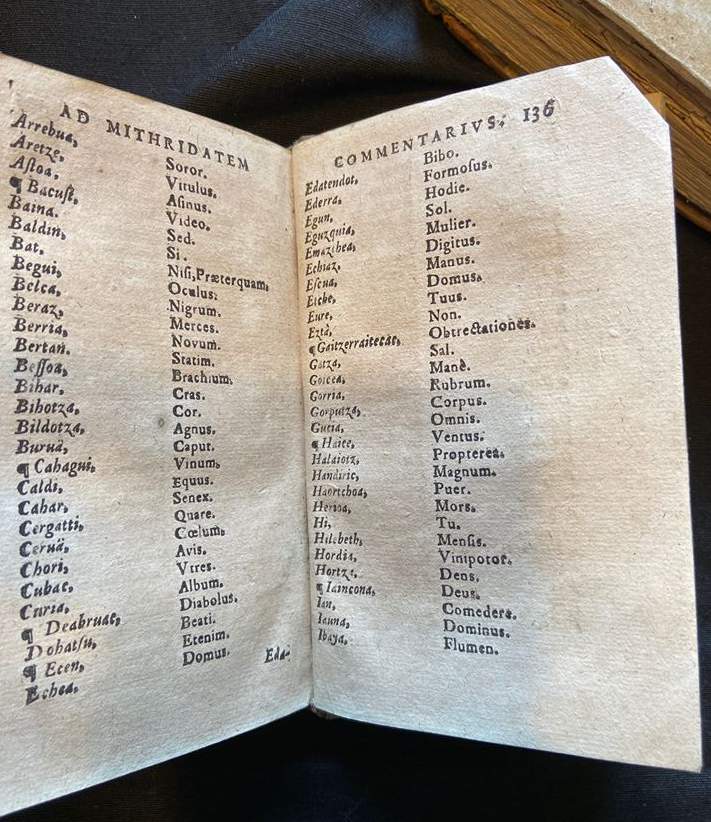 AD MITHRIDATEM
Arrebua, Soror.
Aretze, Vitulus.
Aſtoa, Aſinus.
¶ Bacuſt, Video.
Baina. Sed.
Baldin, Si.
Bat. Niſi,Præterquam,
Begui, Oculus.
Belça, Nigrum.
Beraz, Merces.
Berria, Novum.
Bertan. Statim.
Beſſoa, Brachium,
Bihar, Cras.
Bihotza, Cor.
Bildotza, Agnus.
Buruä, Caput.
¶ Cahagui, Vinum,
Caldi, Equus.
Cahar, Senex.
Cergatti, Quare.
Ceruä, Cœlum.
Chori, Avis.
Cubac, Vtres.
Curia, Album.
¶ Deabruac, Diabolus.
Dohatſu, Beati.
¶ Ecen, Etenim.
Echea, Domus.
Eda-
COMMENTARIVS. 136
Edatendot, Bibo.
Ederra, Formoſus.
Egun, Hodie.
Eguzquia, Sol.
Emazthea, Mulier.
Echiaz, Digitus.
Eſcua, Manus.
Etche, Domus.
Eure, Tuus.
Ezta, Non.
¶Gaitzerraitecac, Obtrectationes.
Gatza, Sal.
Goicea, Manè.
Gorria, Rubrum.
Gorputza, Corpus.
Gucia, Omnis.
¶ Haice, Ventus.
Halaiotz, Propterea.
Handiric, Magnum.
Haortchoa, Puer.
Herioa, Mors.
Hi, Tu.
Hilebeth, Menſis.
Hordia, Vinipotor.
Hortza, Dens.
¶ Iaincona, Deus.
Ian, Comedere.
Iauna, Dominus.
Ibaya, Flumen.